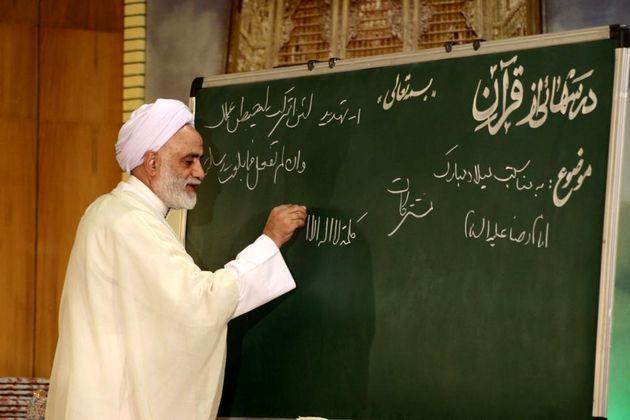 درسهائی از قرآن
بسمه تعالی،
موضوع: به مناسبت میلاد مبارک
امام رضا علیه السلام
مشترکات
۱- تهدید لئن اشرکت لیحبطن عملک
وان لم تفعل فما بلغت رسالته
کلمة لا اله الا ا